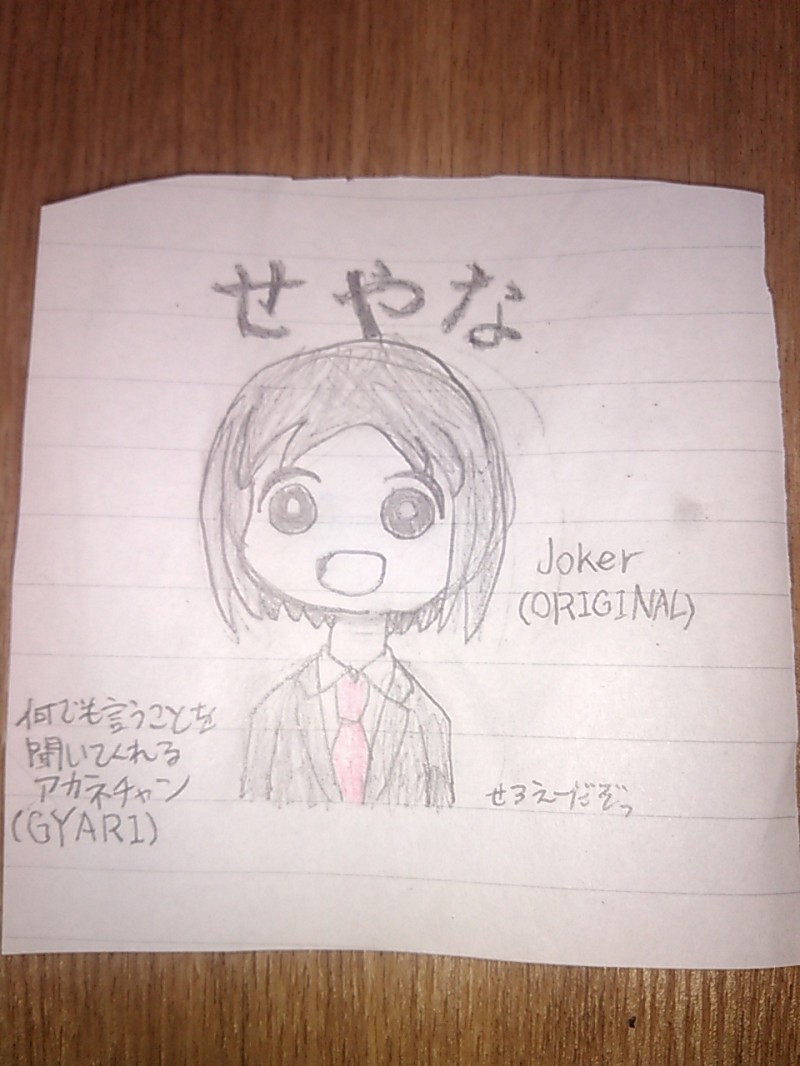 せやな
Joker
(ORIGINAL)
何でも言うことを
聞いてくれる
アカネチャン
(GYARI)
せろえーだぞっ